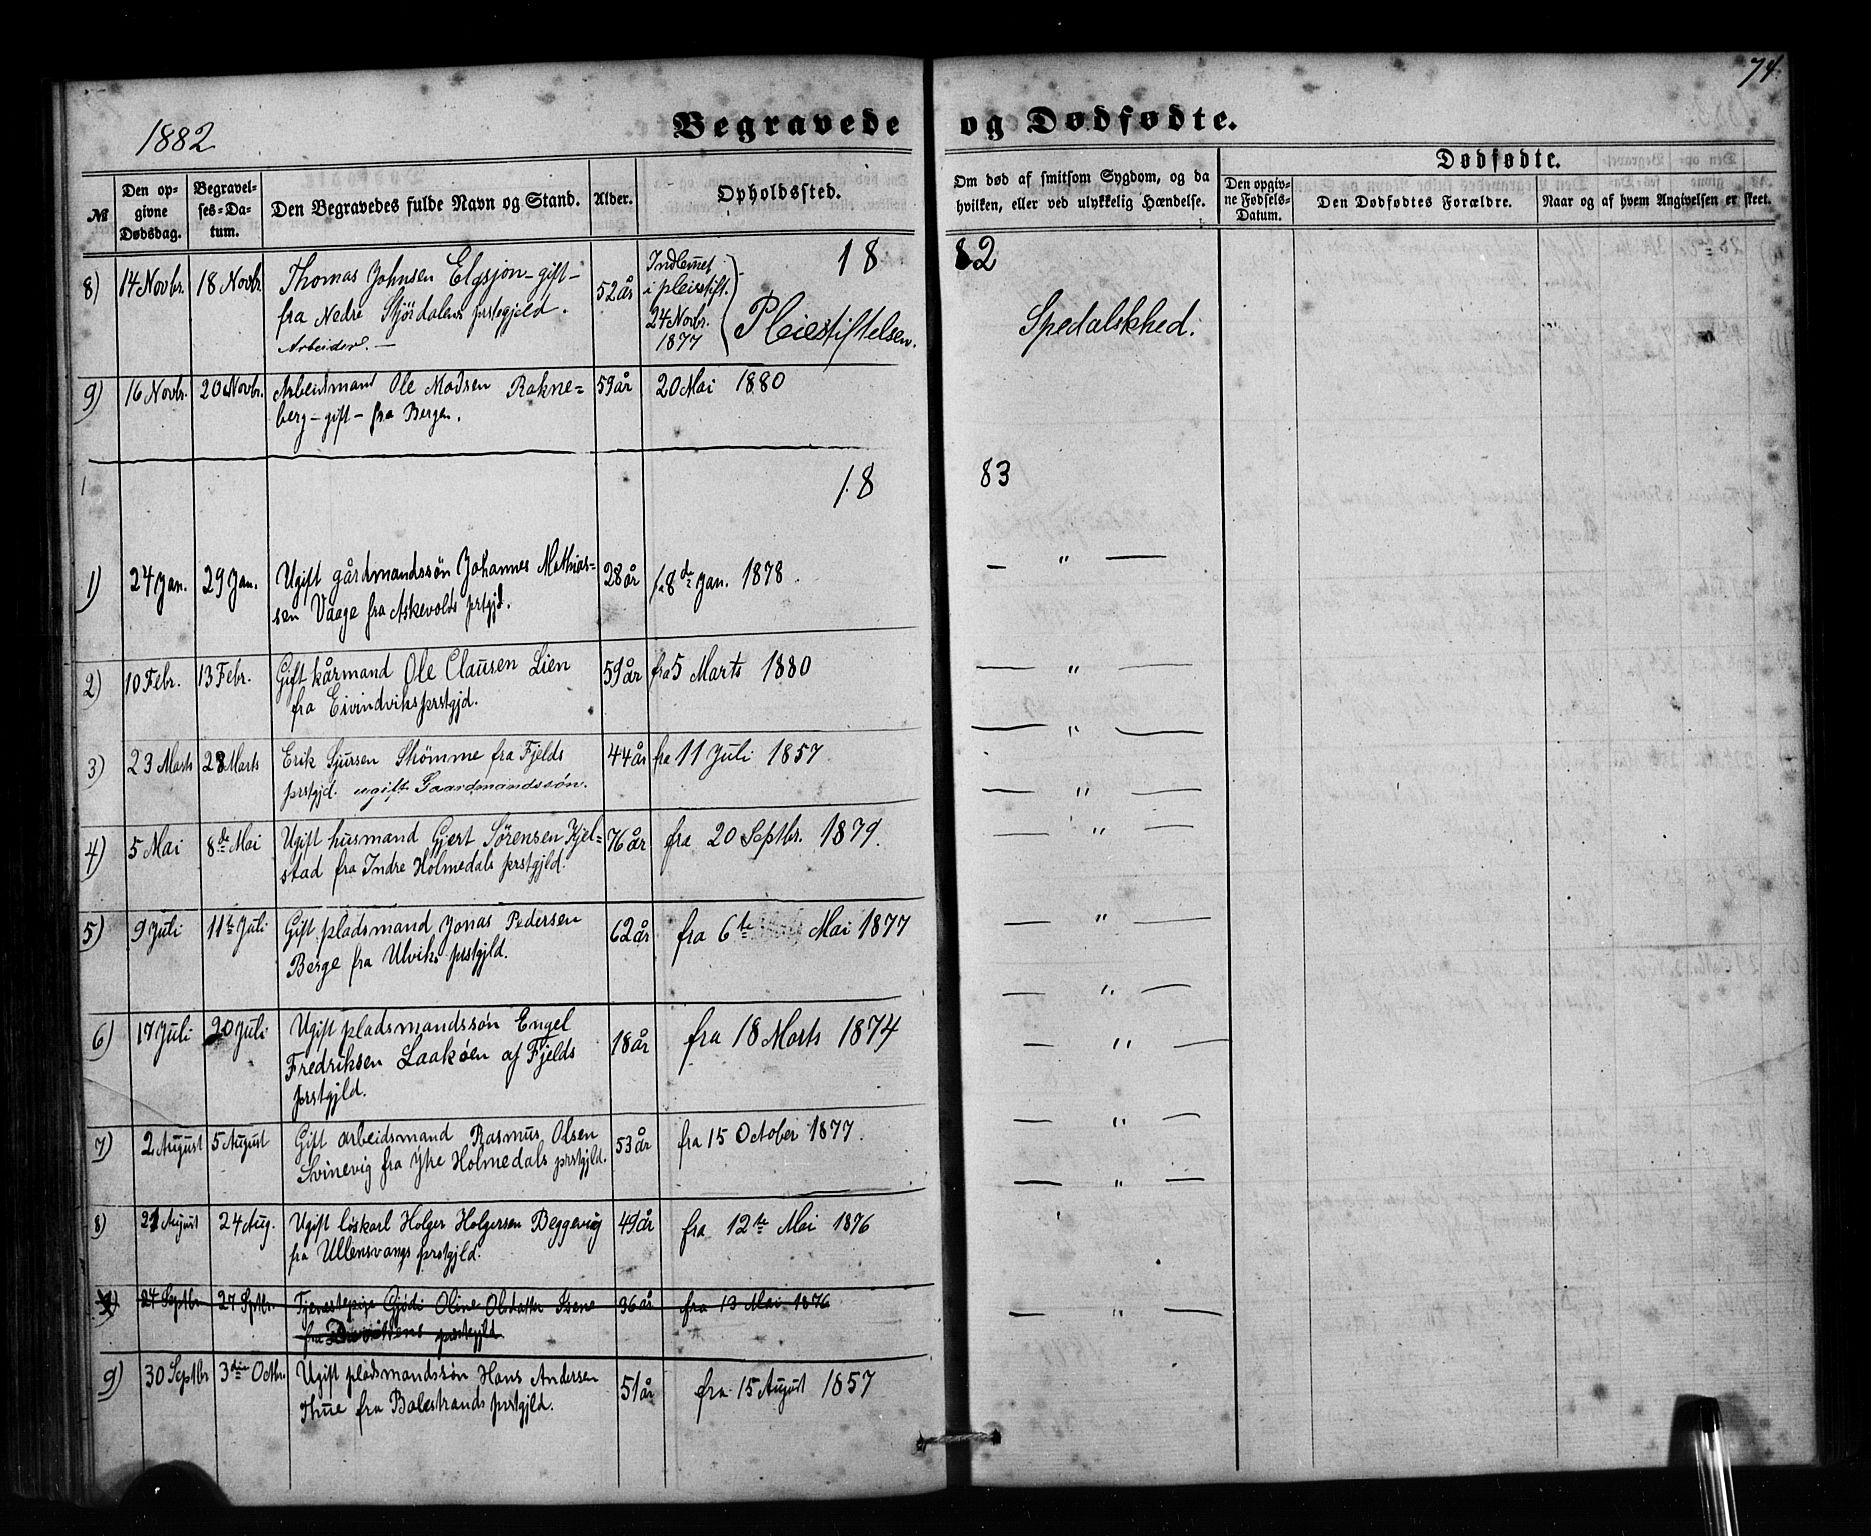 74.
1882
Begravede og Dødfødte.
№
Den opgivne Dødsdag.
Begravelses-Datum.
Den Begravedes fulde Navn og Stand.
Alder.
Opholdssted.
Om død af smitsom Sygdom, og da hvilken, eller ved ulykkelig Hændelse.
Dødfødte.
Den opgivne Fødsels-Datum.
Den Dødfødtes Forældre.
Naar og af hvem Angivelsen er skeet.
18 82
8) 14 Novbr. 18 Novbr Thomas Johnsen Elgsjøn - gift - 52 år Indlemmet
fra Nedre Stjørdalens prstegjeld. i pleiestift.
Arbeider. — 24 Novbr. 1877 Pleiestiftelsen. Spedalskhed.
9) 16 Novbr. 20 Novbr. Arbeidsmand Ole Madsen Rakne= 59 år 20 Mai 1880
berg - gift - fra Bergen.
18 83
1) 24 Jan. 29 Jan. Ugift gårdmandssön Johannes Mathias= 28 år fra 8de Jan. 1878. — " —
sen Vaage fra Askevolds prstgjd.
2) 10 Febr. 13 Febr. Gift kårmand Ole Clausen Lien 59 år fra 5 Marts 1880 — " —
fra Eivindviks prstgjd. — " —
3) 23 Marts 28 Marts Erik Sjursen Skömme fra Fjelds 44 år fra 11 Juli 1857 — " —
prstgjd. ugift Gaardmandssøn.
4) 5 Mai 8de Mai Ugift husmand Gjert Sörensen Kjel= 76 år fra 20 Septbr. 1879. — " —
stad fra Indre Holmedals prstgjld.
5) 9 Juli 11te Juli Gift pladsmand Jonas Pedersen 62 år fra 6te Mai 1877 — " —
Berge fra Ulviks prstgjld. — " —
6) 17 Juli 20 Juli Ugift pladsmandssön Engel 18 år fra 18 Marts 1874 — " —
Fredriksen Laaköen af Fjelds
prstgjld.
7) 2 August 5 August Gift arbeidsmand Rasmus Olsen 53 år fra 15 October 1877. — " —
Svinevig fra Ytre Holmedals prstgjld. — " —
8) 21 August 24 Aug. Ugift löskarl Holger Holgersen Beggevig 49 år fra 12te Mai 1876
fra Ullensvangs prstgjld.
9) 24 Septbr 27 Sptbr. Tjenestepige Gjødi Oline Olsdatter Isene 36 år fra 13 Mai 1876 — " —
fra Davikens prstgjld.
9) 30 Septbr 3die Octbr. Ugift pladsmandssön Hans Andersen 51 år fra 15 August 1857
Thue fra Balestrands prstgjld.